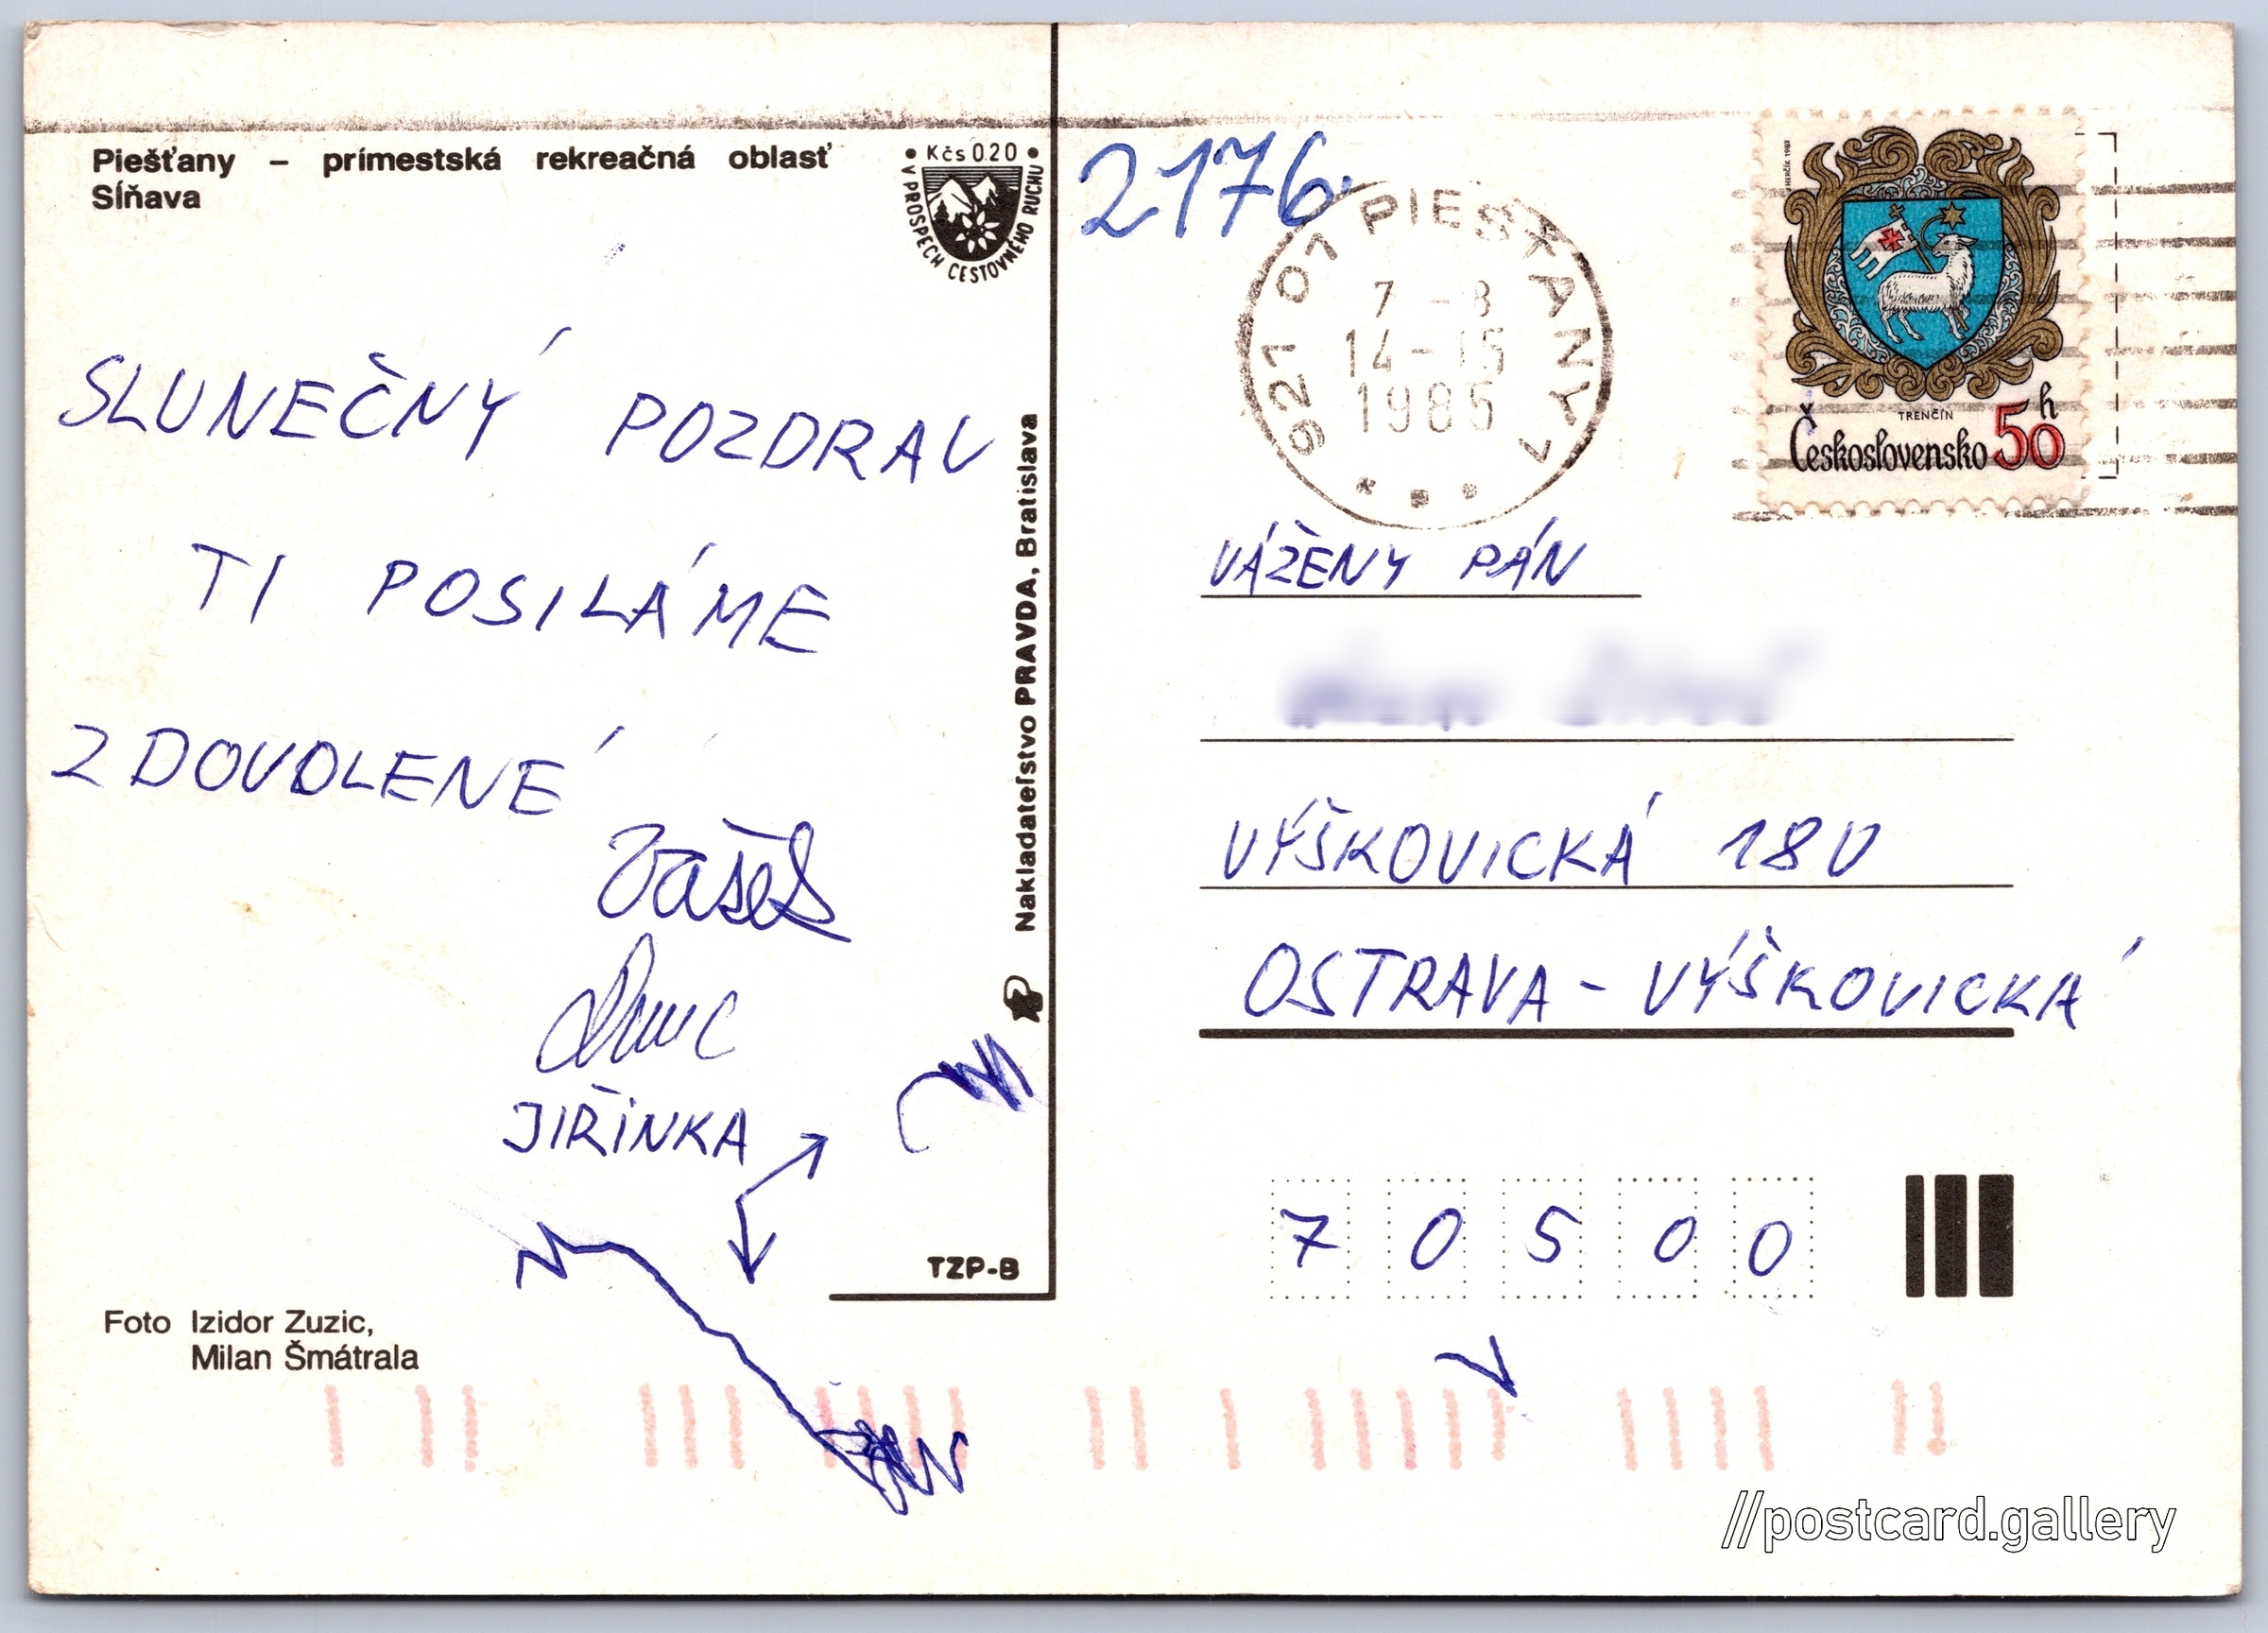 Piešťany – prímestská rekreačná oblasť
Sĺňava
• Kčs 0.20 •
V PROSPECH CESTOVNÉHO RUCHU
SLUNEČNÝ POZDRAV
TI POSILÁME
Z DOVOLENÉ
Vašek
JIŘINKA
Foto Izidor Zuzic,
Milan Šmátrala
TZP-B
Nakladateľstvo PRAVDA, Bratislava
2176
921 01 PIEŠŤANY 1
7 -8
14-15
1985
J. HERČÍK 1982
TRENČÍN
Československo 50 h
VÁŽENÝ PÁN
VÝŠKOVICKÁ 180
OSTRAVA - VÝŠKOVICKÁ
7 0 5 0 0
//postcard.gallery